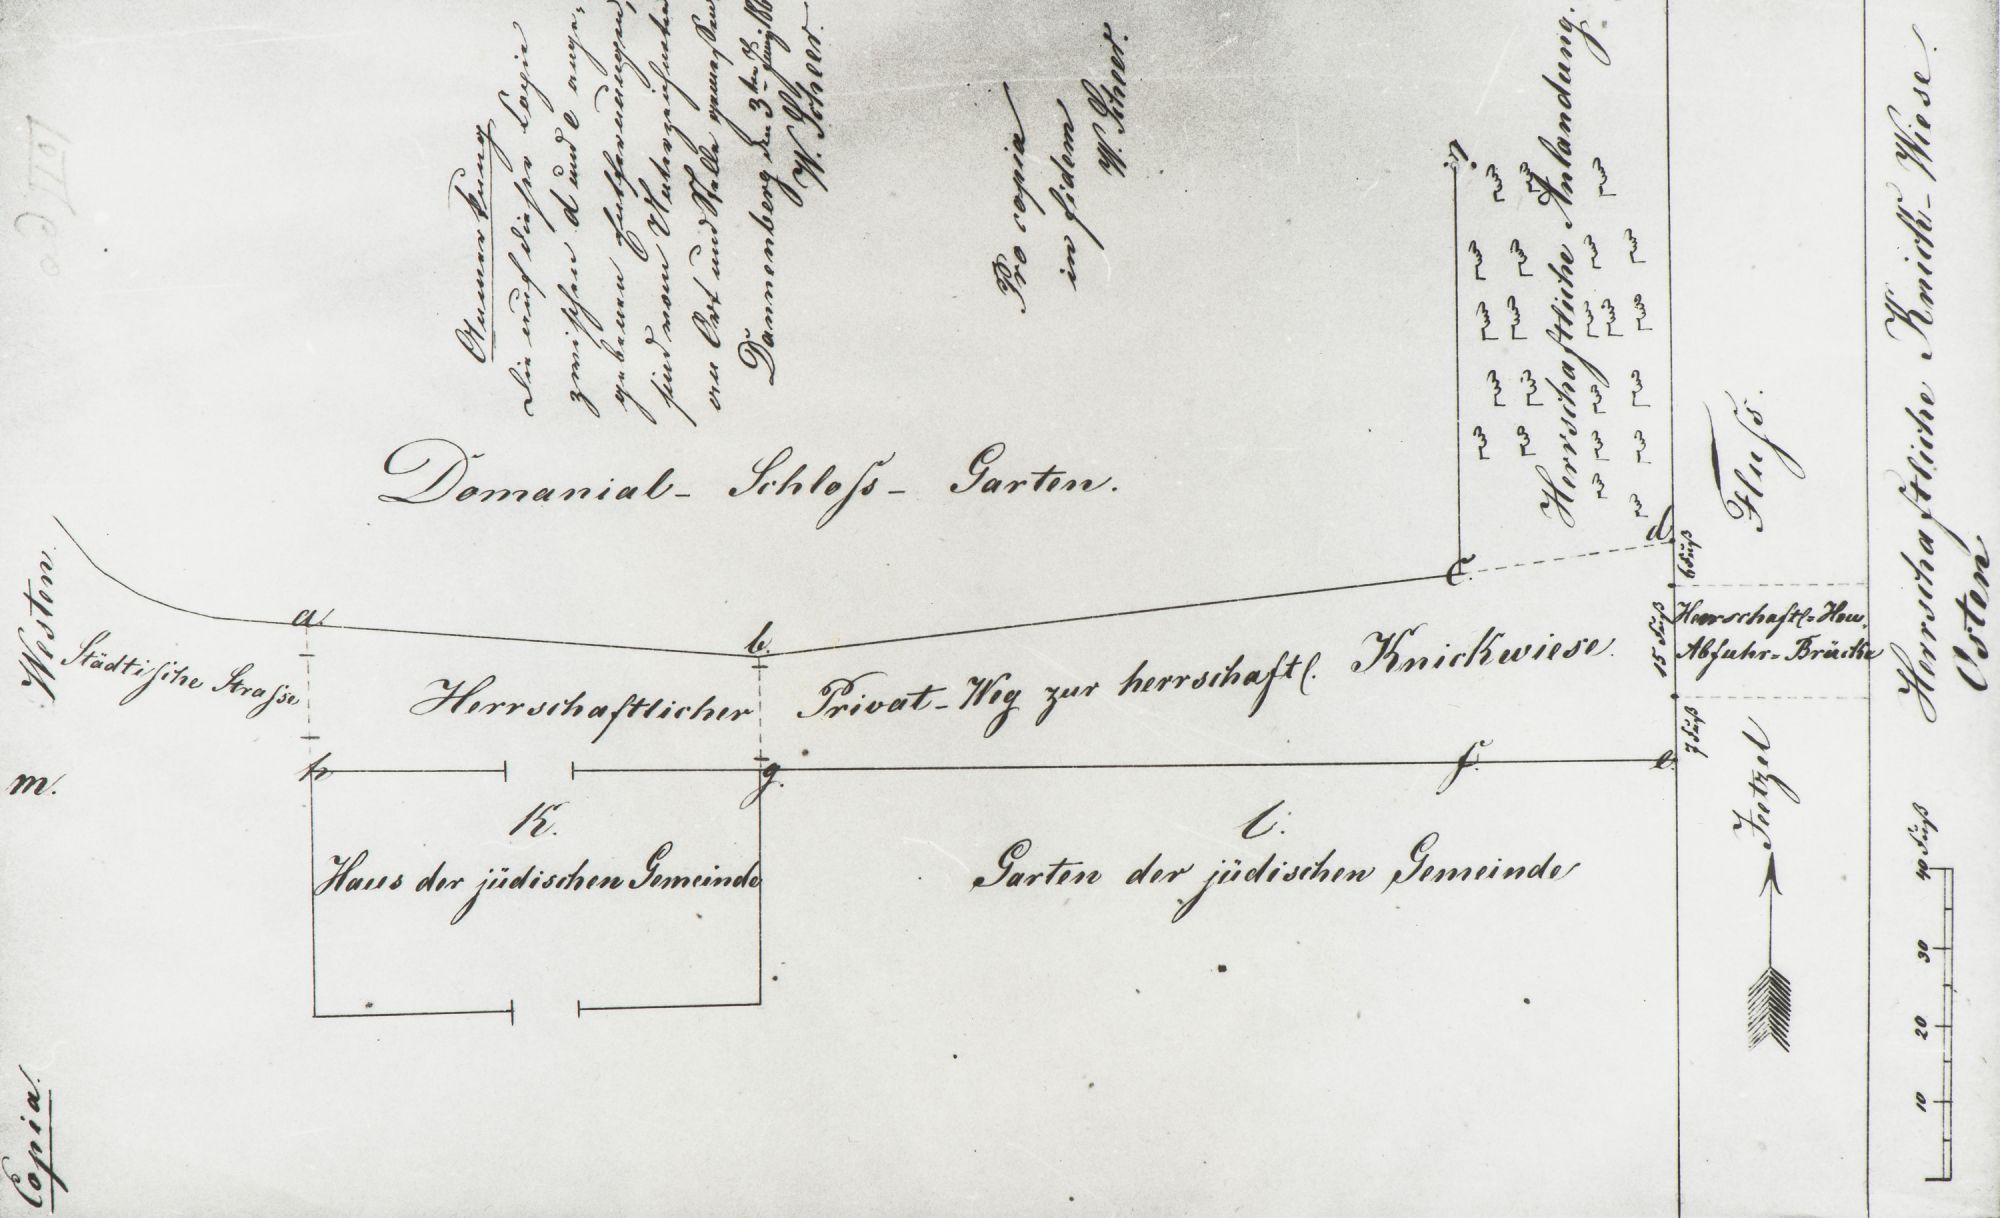 Copia.
Westen.
m.
Anmerkung
Die auf dieser Copie
zwischen d und e ange-
gebenen Entfernungen,
sind vom Unterzeichneten
an Ort und Stelle gemessen
Dannenberg den 3ten
W. Scheer.
Pro copia
in fidem
W. Scheer.
Domanial- Schloss- Garten.
Städtische Strasse
a.
b.
C
d.
i.
Herrschaftliche Anlandung.
Herrschaftlicher Privat-Weg zur herrschaftl. Knickwiese.
h
g.
f.
e.
K.
Haus der jüdischen Gemeinde
l.
Garten der jüdischen Gemeinde
6 Fuß
15 Fuß
7 Fuß
Herrschaftl. Heu-
Abfuhr-Brücke
Jeetzel
Fluss.
Herrschaftliche Knick-Wiese.
Osten
10 20 30 40 Fuß